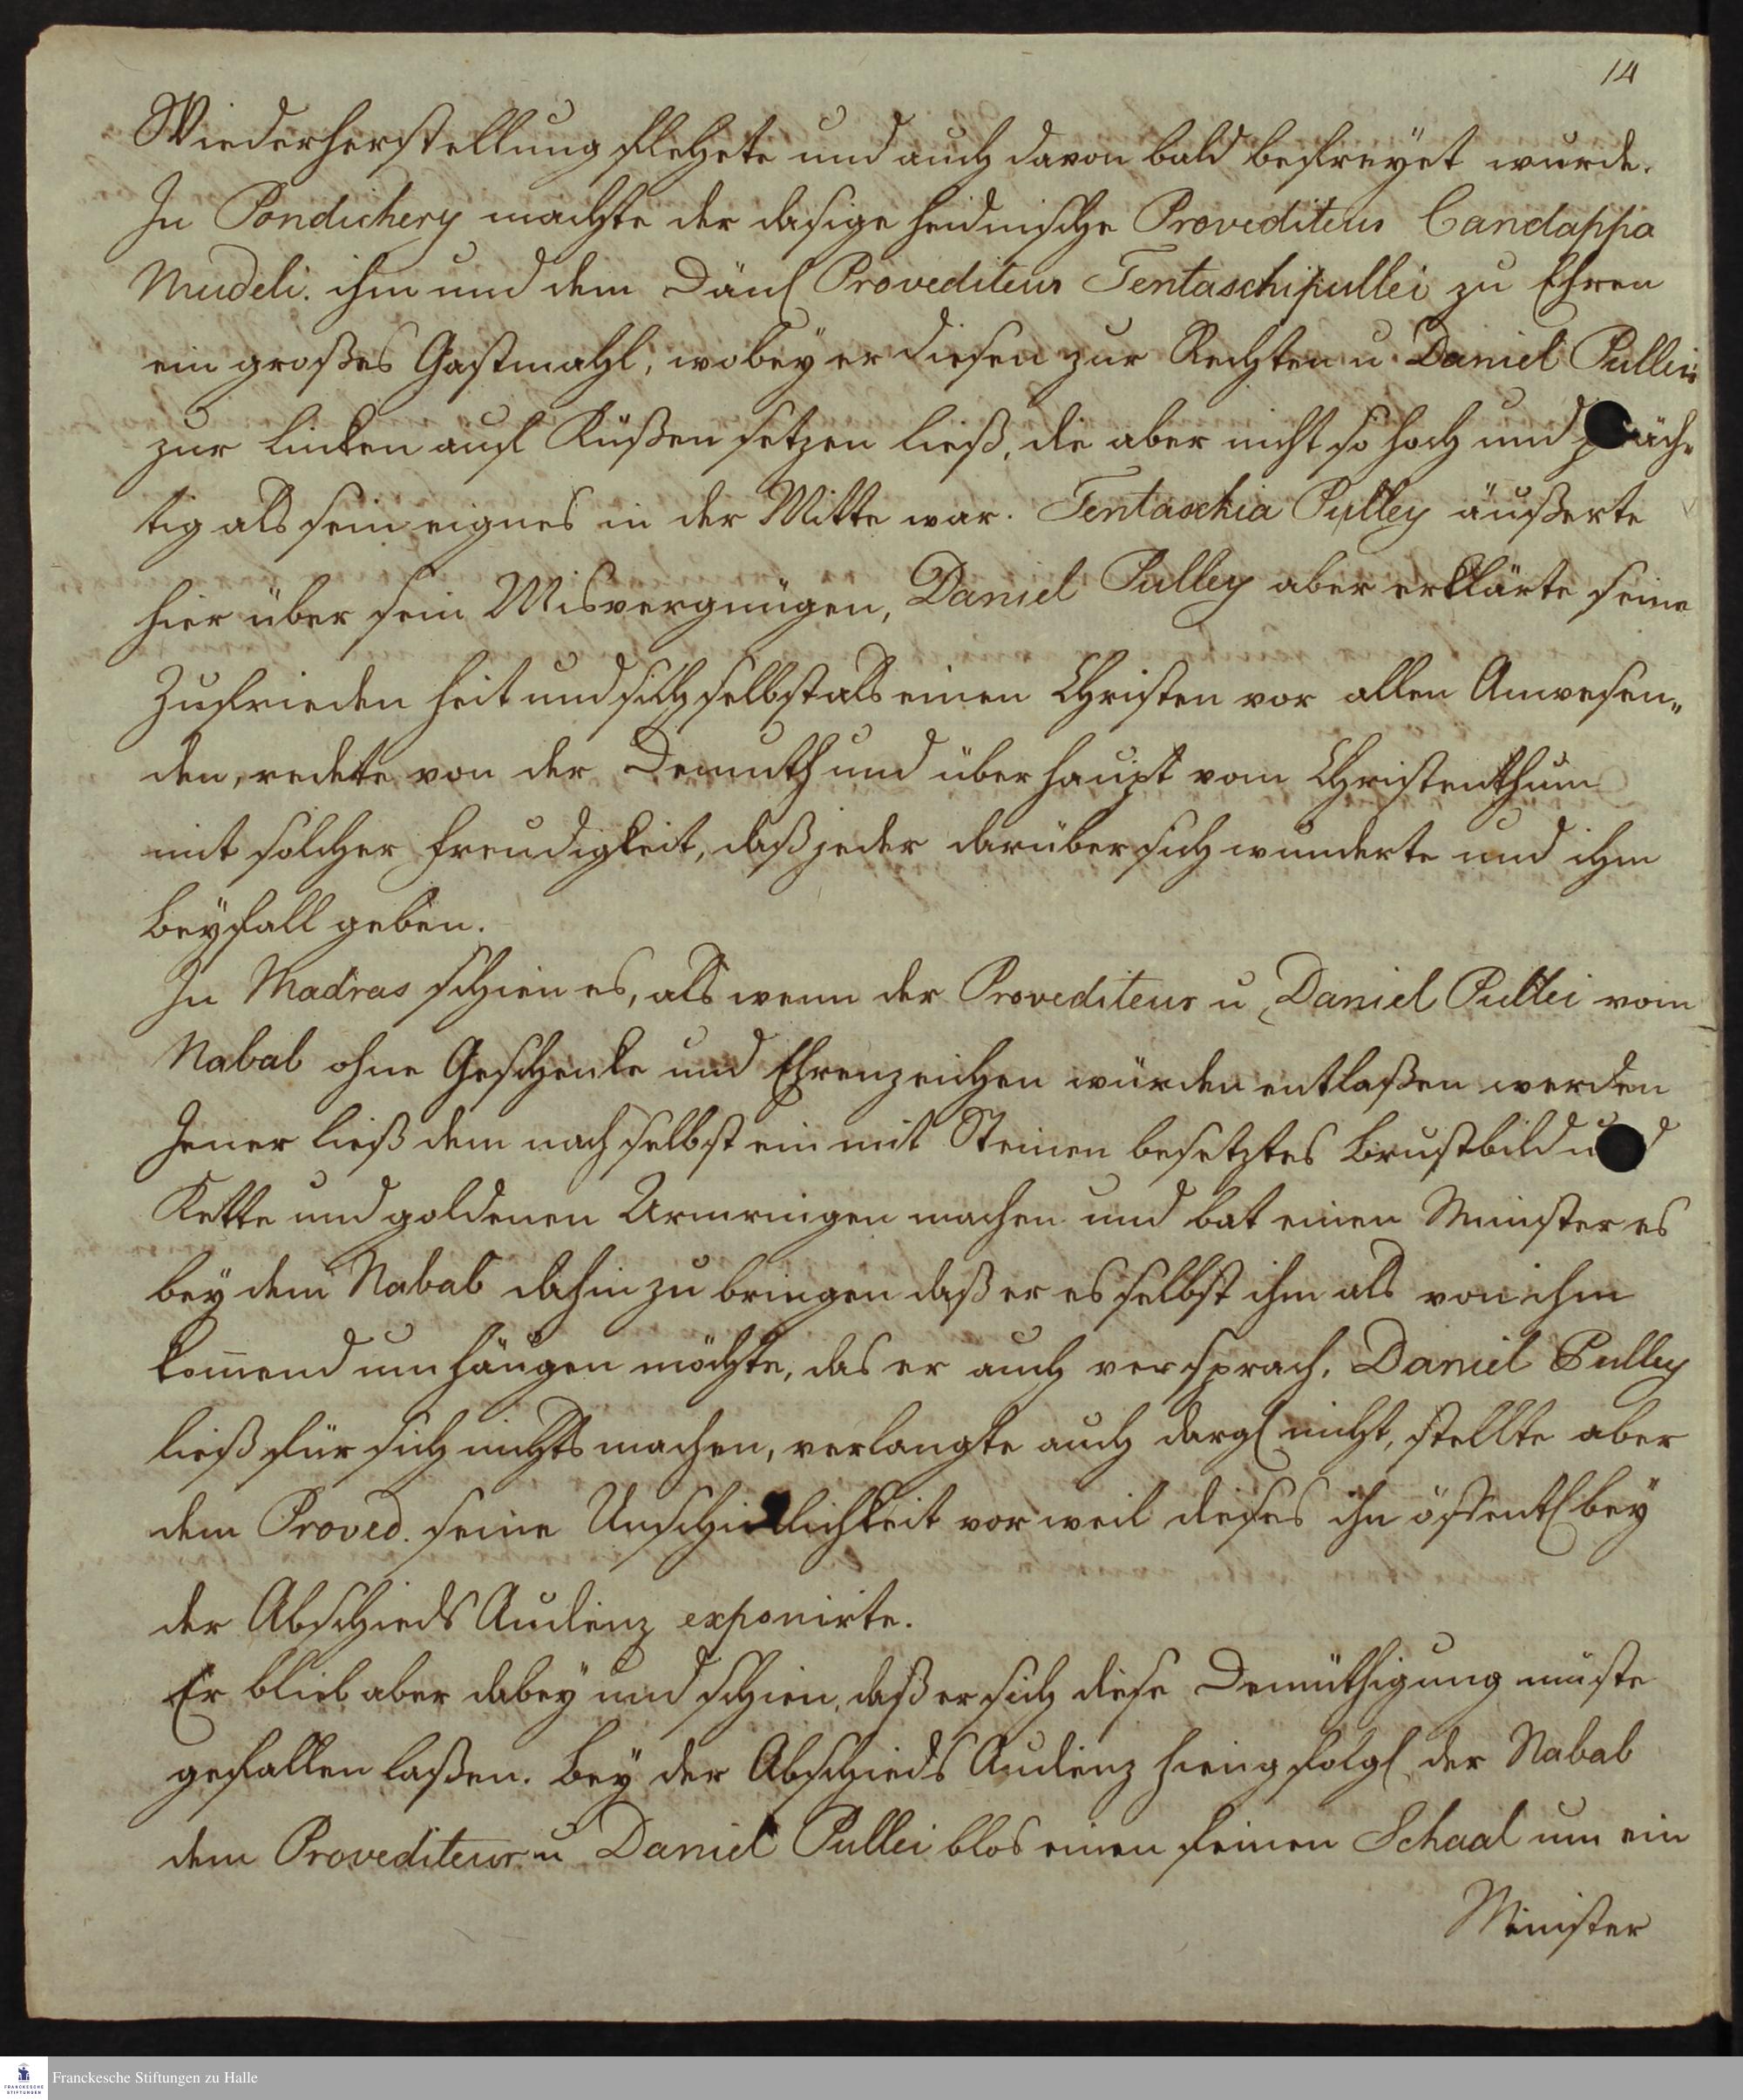 14
Wiederherstellung flehete und auch davon bald befreyet wurde.
In Pondichery machte der dasige heidnische Provediteur Candappa
Mudeli. ihm und dem Dän Provediteur Tentaschipullei zu Ehren
ein großes Gastmahl, wobey er diesen zur Rechten u. Daniel Pullei
zur Linken auf Küßen setzen ließ, die aber nicht so hoch und präch-
tig als sein eignes in der Mitte war. Tentaschia Pulley äußerte
hier über sein Misvergnügen, Daniel Pulley aber erklärte seine
Zufrieden heit und sich selbst als einen Christen vor allen Anwesen„
den, redete von der Demuth und über haupt vom Christenthum
mit solcher Freudigkeit, daß jeder darüber sich wunderte und ihm
Beyfall geben.
In Madras schien es, als wenn der Provediteur u Daniel Pullei vom
Nabab ohne Geschenke und Ehrenzeichen würden entlaßen werden
Jener ließ dem nach selbst ein mit Steinen besetztes Brustbild und
Kette und goldenen Armringen machen und bat einen Minister es
bey dem Nabab dahin zu bringen daß er es selbst ihm als von ihm
kom̄end um hängen möchte, das er auch versprach. Daniel Pulley
ließ für sich nichts machen, verlangte auch dergl nicht, stellte aber
dem Proved. seine Unschicklichkeit vor weil dieses ihn öffentl bey
der Abschieds Audienz exponirte.
Er blieb aber dabey und schien, daß er sich diese Demüthigung müste
gefallen laßen. Bey der Abschieds Audienz hieng folgl der Nabab
dem Provediteur u Daniel Pullei blos einen feinen Schaal um ein
Minister
Franckesche Stiftungen zu Halle